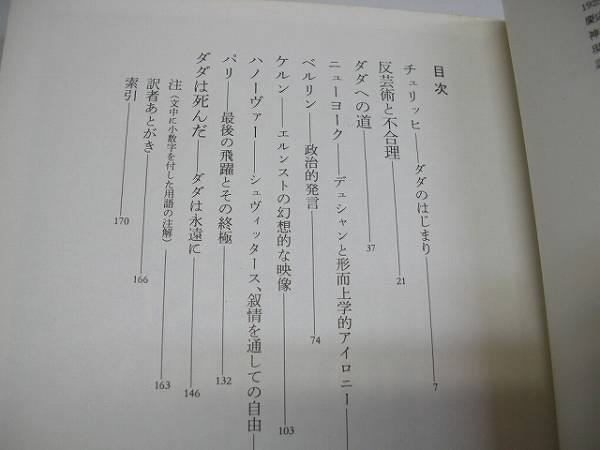 目次
チュリッヒ——ダダのはじまり——7
反芸術と不合理——21
ダダへの道——37
ニューヨーク——デュシャンと形而上学的アイロニー——
ベルリン——政治的発言——74
ケルン——エルンストの幻想的な映像——103
ハノーヴァー——シュヴィッタース、叙情を通しての自由——
パリ——最後の飛躍とその終極——132
ダダは死んだ——ダダは永遠に——146
注(文中に小数字を付した用語の注解)——163
訳者あとがき——166
索引——170